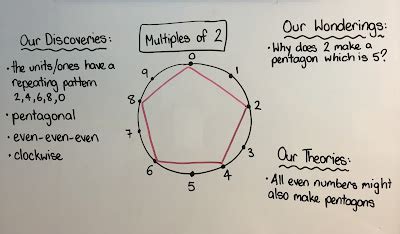 Our Discoveries:
• the units/ones have a
repeating pattern
2,4,6,8,0
• pentagonal
• even-even-even
• clockwise
Multiples of 2
0
1
2
3
4
5
6
7
8
9
Our Wonderings:
• Why does 2 make a
pentagon which is 5?
Our Theories:
• All even numbers might
also make pentagons